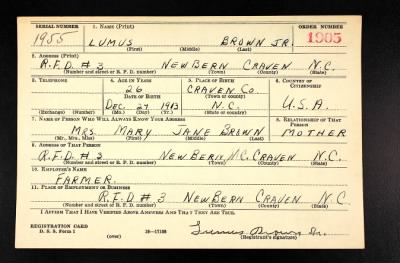 SERIAL NUMBER 1. NAME (Print) ORDER NUMBER
1955 LUMUS BROWN JR. 1905
(First) (Middle) (Last)
2. ADDRESS (Print)
R.F.D. #3 NEW BERN CRAVEN N.C.
(Number and street or R. F. D. number) (Town) (County) (State)
3. TELEPHONE 4. AGE IN YEARS 5. PLACE OF BIRTH 6. COUNTRY OF CITIZENSHIP
26 CRAVEN CO.
DATE OF BIRTH (Town or county)
DEC. 27 1913 N.C. U.S.A.
(Exchange) (Number) (Mo.) (Day) (Yr.) (State or country)
7. NAME OF PERSON WHO WILL ALWAYS KNOW YOUR ADDRESS 8. RELATIONSHIP OF THAT PERSON
MRS. MARY JANE BROWN MOTHER
(Mr., Mrs., Miss) (First) (Middle) (Last)
9. ADDRESS OF THAT PERSON
R.F.D. #3 NEW BERN, N.C. CRAVEN N.C.
(Number and street or R. F. D. number) (Town) (County) (State)
10. EMPLOYER'S NAME
FARMER.
11. PLACE OF EMPLOYMENT OR BUSINESS
R.F.D. #3 NEW BERN CRAVEN N.C.
(Number and street or R. F. D. number) (Town) (County) (State)
I AFFIRM THAT I HAVE VERIFIED ABOVE ANSWERS AND THAT THEY ARE TRUE.
REGISTRATION CARD
D. S. S. Form 1 16—17105 Lumus Brown Jr.
(over) (Registrant's signature)